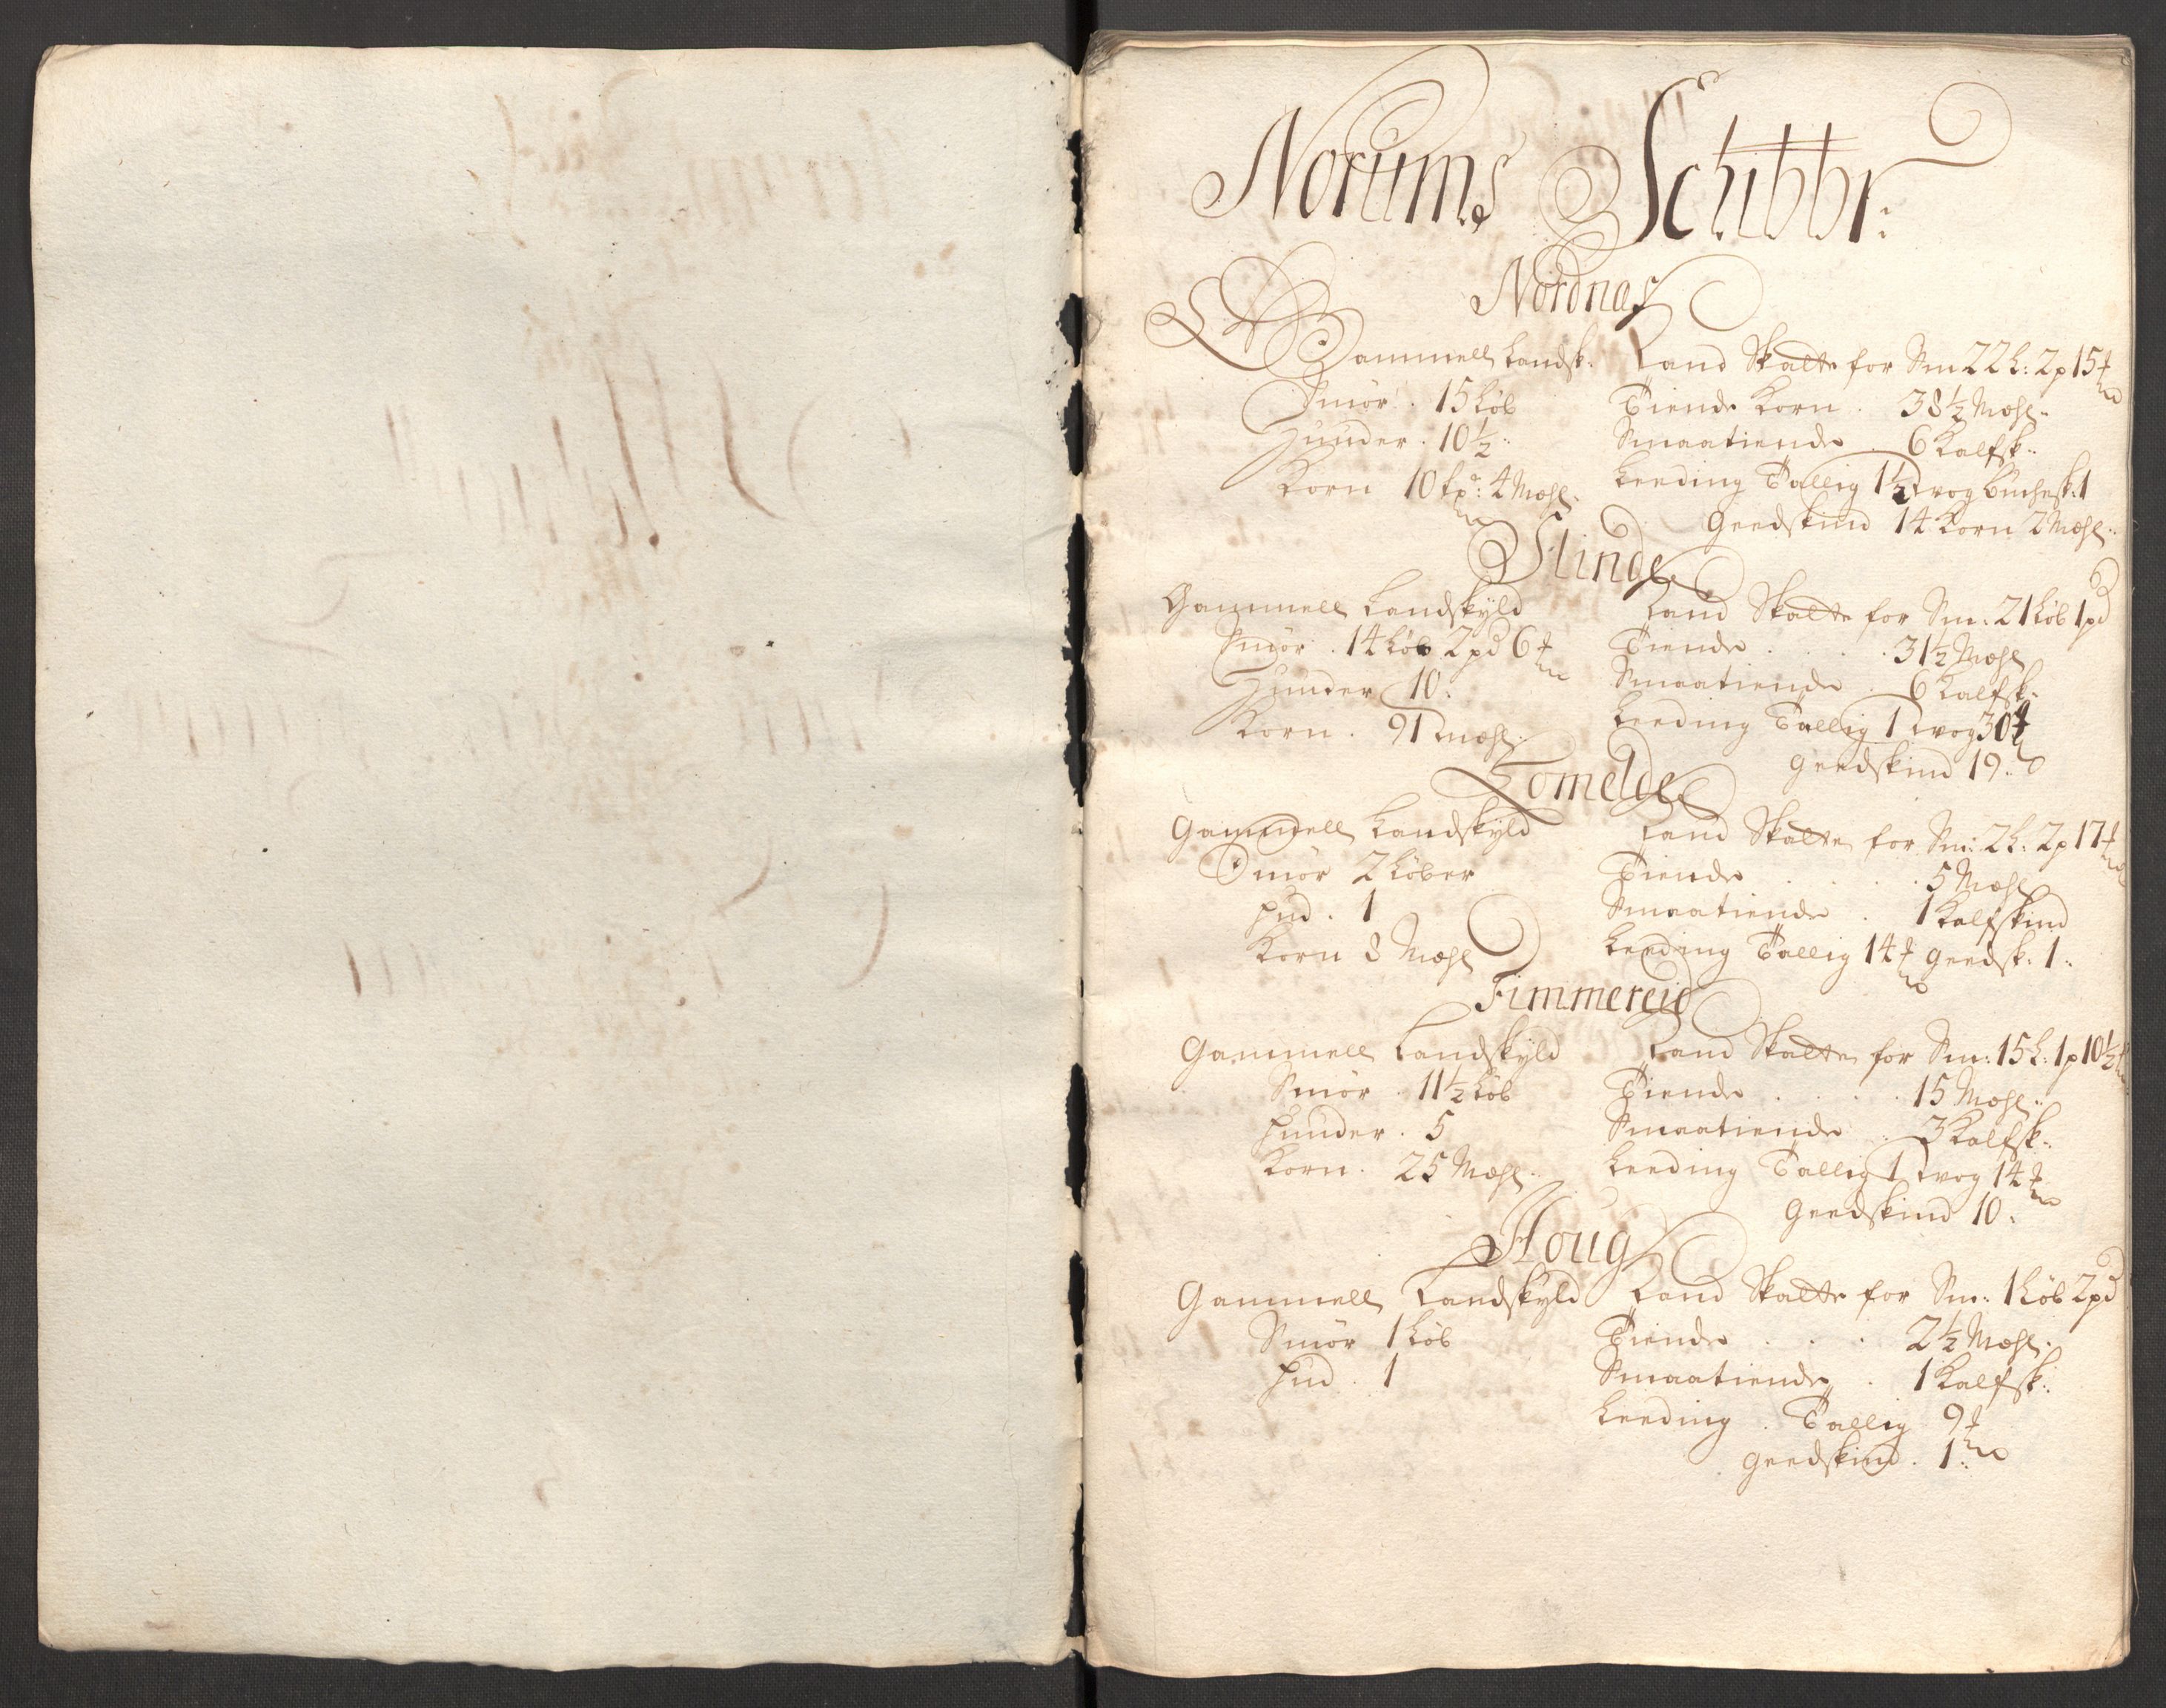 Norums Schibbr:
Nordnas
Gammell Landsk: Land Skatte for Sm 22 L: 2 p 15 ℔
Smör . 15 Løb Tiende Korn . 38½ Mæhl:
Huuder . 10½ : Smaatiende . 6 Kalfsk:
Korn 10 tp: 4 Mæhl: Leeding Tallig 1½ Vog Buckesk: 1
Geedskind 14 Korn 2 Mæhl:
Slinde
Gammell Landskÿld Land Skatte for Sm: 21 Løb 1 pd
Smör . 14 Løb 2 pd 6 ℔ Tiende . . . . 31½ Mæhl
Huuder 10 : Smaatiende . 6 Kalfsk:
Korn . 91 mæhl: Leeding Tallig 1 Vog 30 ℔
Geedskind 19 :
Lomelde
Gammell Landskÿld Land Skatte for Sm: 2 L: 2 p 17 ℔
Smör 2 Løber Tiende . . . . 5 Mæhl
Hud . 1 Smaatiende . 1 Kalfskind
Korn 8 Mæhl Leeding Tallig 14 ℔ Geedsk: 1 :
Fimmereid
Gammell Landskÿld Land Skatte for Sm: 15 L: 1 p 10½ ℔
Smör . 11½ Løb Tiende . . . . 15 Mæhl:
Huuder . 5 Smaatiende . 3 Kalfsk:
Korn . 25 Mæhl: Leeding Tallig 1 Vog 14 ℔
Geedskind 10 :
Houg
Gammell Landskÿld Land Skatte for Sm: 1 Løb 2 pd
Smör 1 Løb Tiende . . . 2½ Mæhl:
Hud . 1 Smaatiende . 1 Kalfsk:
Leeding . Tallig 9 ℔
Geedskind . 1 :